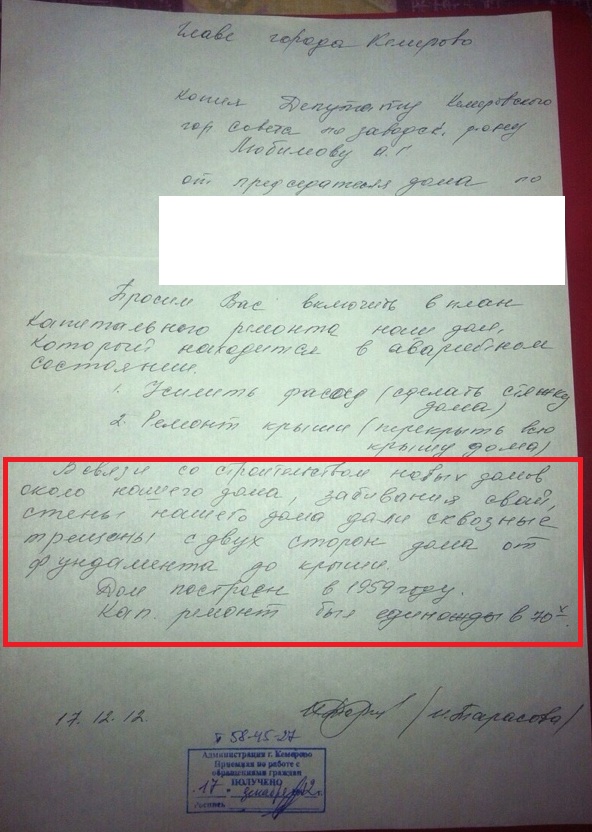 Главе города Кемерово
Копия Депутату Кемеровского
гор совета по заводск. р-ону
Любимову А.Г
от председателя дома по
Просим Вас включить в план
капитального ремонта наш дом,
который находится в аварийном
состоянии.
1. Усилить фасад (сделать стяжку
дома)
2. Ремонт крыши (перекрыть всю
крышу дома)
В связи со строительством новых домов
около нашего дома, забивания свай,
стены нашего дома дали сквозные
трещины с двух сторон дома от
фундамента до крыши.
Дом построен в 1959 году.
Кап. ремонт был единожды в 70х.
17.12.12. /Тарасова/
т 58-45-27
Администрация г. Кемерово
Приемная по работе с
обращениями граждан
ПОЛУЧЕНО
17 декабря 2012г
роспись